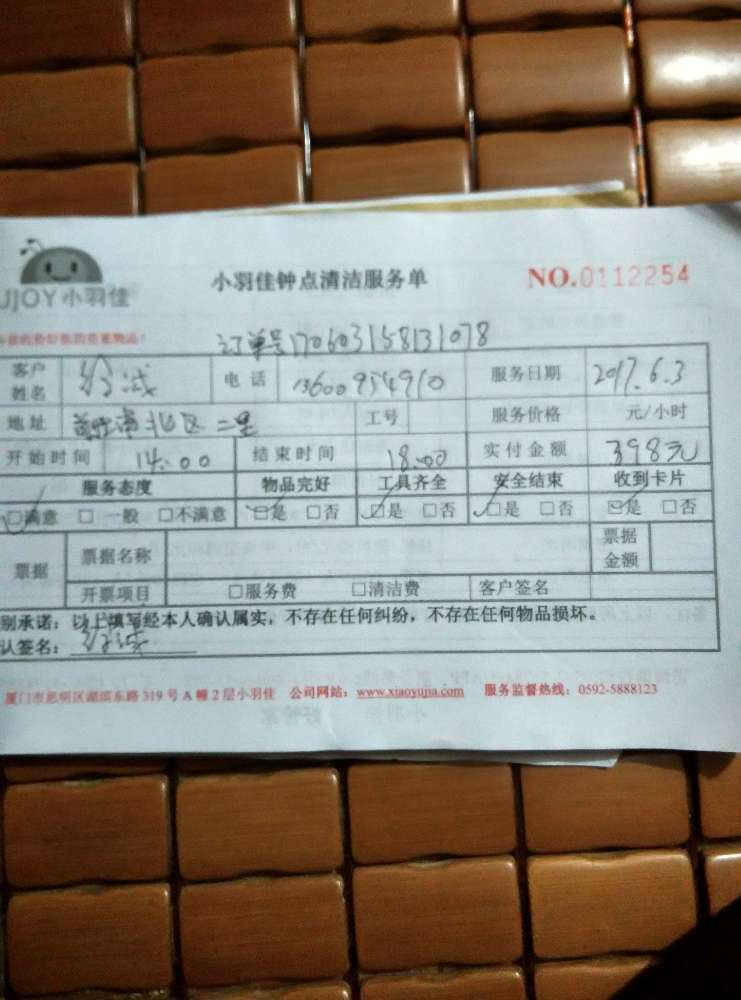 UJOY小羽佳
小羽佳钟点清洁服务单 NO.0112254
订单号170603158131078
客户姓名 电话 13600954910 服务日期 2017.6.3
地址 北区二里 工号 服务价格 元/小时
开始时间 14:00 结束时间 18:00 实付金额 398元
服务态度 物品完好 工具齐全 安全结束 收到卡片
□满意 □一般 □不满意 □是 □否 □是 □否 □是 □否 □是 □否
票据 票据名称 票据金额
开票项目 □服务费 □清洁费 客户签名
别承诺：以上填写经本人确认属实，不存在任何纠纷，不存在任何物品损坏。
认签名：
厦门市思明区湖滨东路319号A幢2层小羽佳 公司网站：www.xiaoyujia.com 服务监督热线：0592-5888123